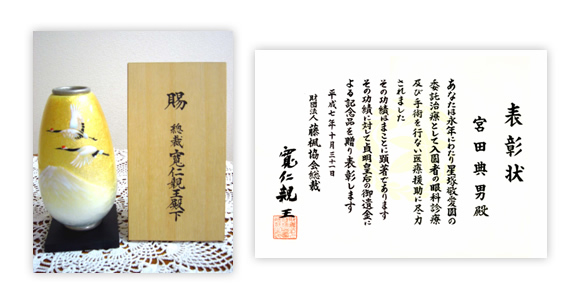 賜
総裁寛仁親王殿下
表彰状
宮田典男殿
あなたは永年にわたり星塚敬愛園の
委託治療として入園者の眼科診療
及び手術を行ない医療援助に尽力
されました
その功績はまことに顕著であります
その功績に対して貞明皇后の御遺金に
よる記念品を贈り表彰します
平成七年十月三十一日
財団法人藤楓協会総裁
寛仁親王